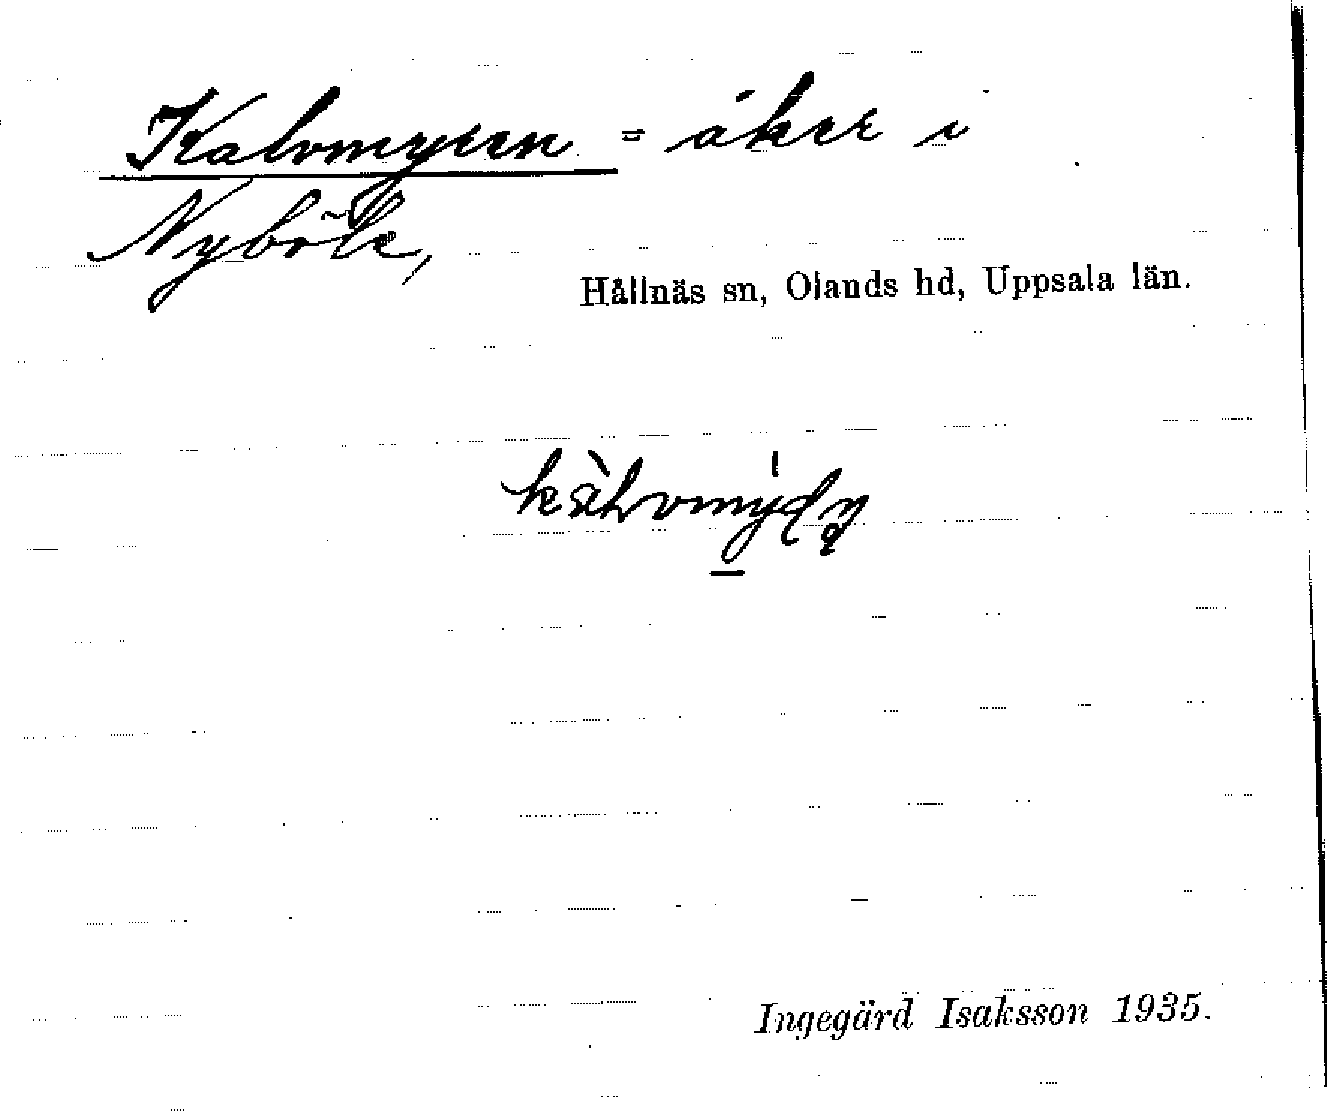 Kalvmyren = åker i
Nyböle,
Hållnäs sn, Olands hd, Uppsala län.
Ingegärd Isaksson 1935.